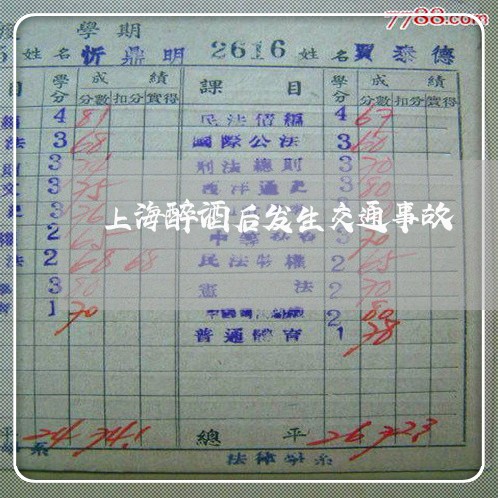 7788.com
學期
姓名 忻鼎明 2616 姓名 賈泰德
目 學分 成績 課目 學分 成績
分數 扣分 實得 分數 扣分 實得
4 81 民法債編 4 67
法 3 68 國際公法 3 60
3 刑法總則 3 70
3 75 西洋通史 3 80
3 76
上海醉酒后发生交通事故
2 65 3 70
法 2 68 68 民法物權 2 65
3 80 憲法 2 70
1 70 2 80
普通體育 1 78
平 24 74.1 總平 26 72.3
系 法律學系